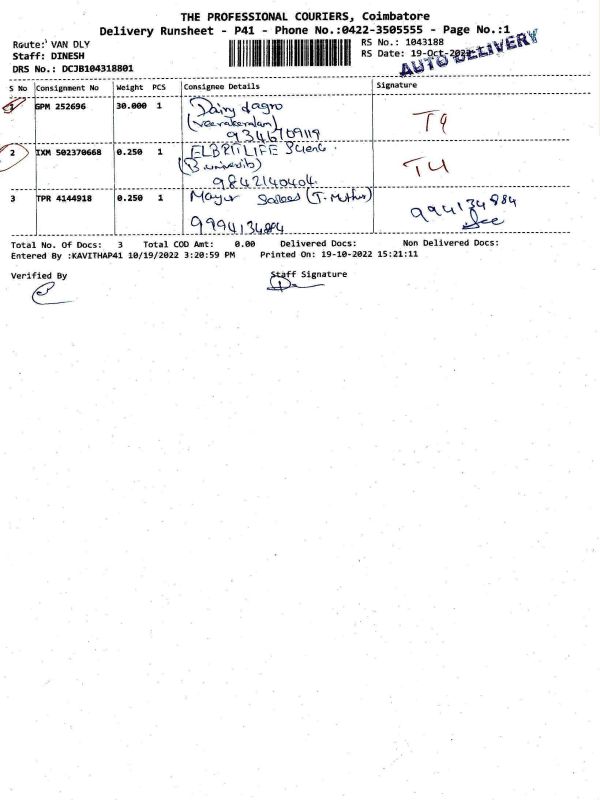 THE PROFESSIONAL COURIERS, Coimbatore
Delivery Runsheet - P41 - Phone No.:0422-3505555 - Page No.:1
Route: VAN DLY
RS No.: 1043188
Staff: DINESH
RS Date: 19-Oct-2022
AUTO DELIVERY
DRS No.: DCJB104318801
S No Consignment No Weight PCS Consignee Details Signature
1 GPM 252696 30.000 1 Dairy & agro
(Veerakeralam)
9346709119
T9
2 IXM 502370668 0.250 1 ELBRIT LIFE Scienc
9842140404
T4
3 TPR 4144918 0.250 1 Mayur Sarees (T. Muthu)
9994134884
994134884
Total No. Of Docs: 3 Total COD Amt: 0.00 Delivered Docs: Non Delivered Docs:
Entered By :KAVITHAP41 10/19/2022 3:20:59 PM Printed On: 19-10-2022 15:21:11
Verified By Staff Signature